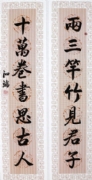 兩三竿竹見君子
十萬卷書思古人